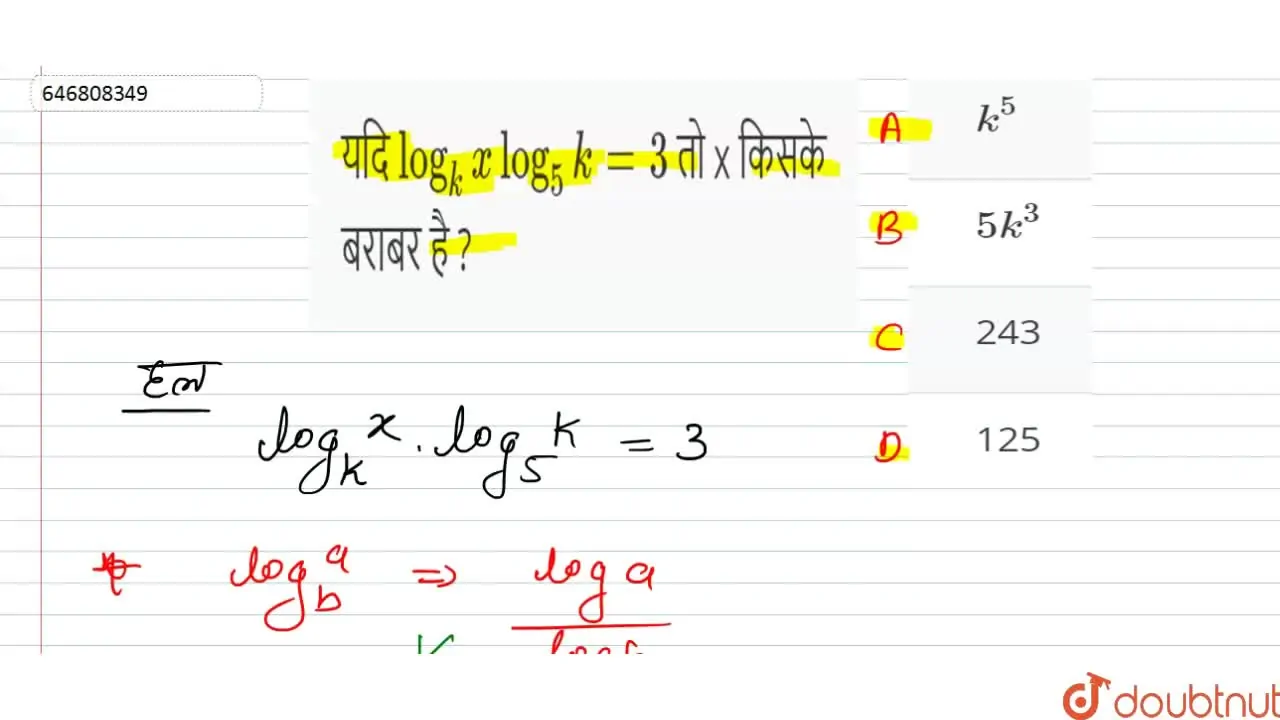 646808349
यदि log_k x log_5 k = 3 तो x किसके
बराबर है ?
A k^5
B 5k^3
C 243
D 125
हल
log_k x . log_5 k = 3
* log_b a ⇒ log a
doubtnut